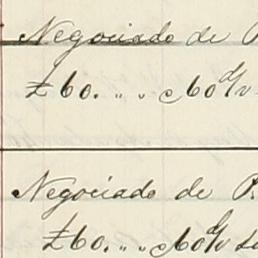 Negociado de P
£60. " " c/60 d/v
Negociado de P.
£60. " " c/60 d/v